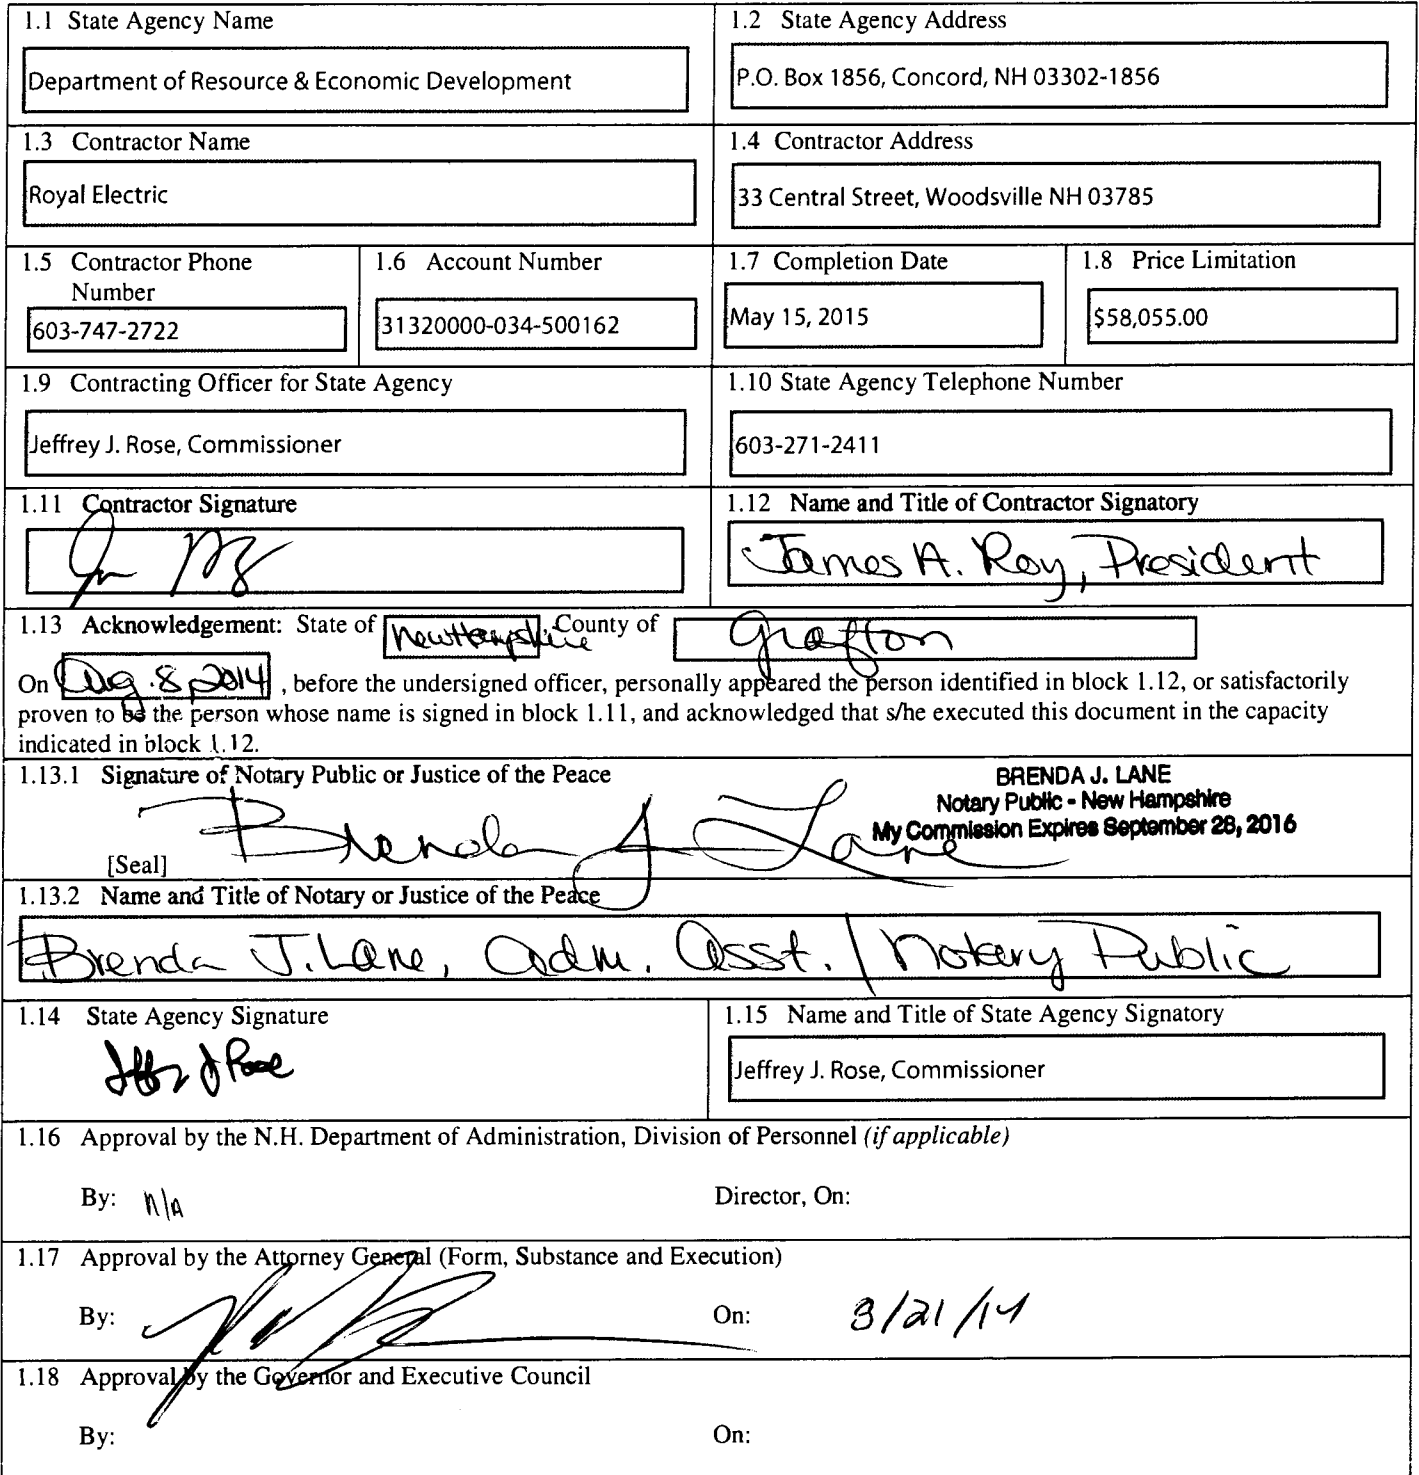 1.1 State Agency Name
Department of Resource & Economic Development
1.2 State Agency Address
P.O. Box 1856, Concord, NH 03302-1856
1.3 Contractor Name
Royal Electric
1.4 Contractor Address
33 Central Street, Woodsville NH 03785
1.5 Contractor Phone
Number
603-747-2722
1.6 Account Number
31320000-034-500162
1.7 Completion Date
May 15, 2015
1.8 Price Limitation
$58,055.00
1.9 Contracting Officer for State Agency
Jeffrey J. Rose, Commissioner
1.10 State Agency Telephone Number
603-271-2411
1.11 Contractor Signature
1.12 Name and Title of Contractor Signatory
James A. Roy, President
1.13 Acknowledgement: State of New Hampshire, County of Grafton
On Aug. 8 2014, before the undersigned officer, personally appeared the person identified in block 1.12, or satisfactorily
proven to be the person whose name is signed in block 1.11, and acknowledged that s/he executed this document in the capacity
indicated in block 1.12.
1.13.1 Signature of Notary Public or Justice of the Peace
BRENDA J. LANE
Notary Public - New Hampshire
My Commission Expires September 28, 2016
Brenda J Lane
[Seal]
1.13.2 Name and Title of Notary or Justice of the Peace
Brenda J. Lane, Adm. Asst. / Notary Public
1.14 State Agency Signature
Jeffrey J Rose
1.15 Name and Title of State Agency Signatory
Jeffrey J. Rose, Commissioner
1.16 Approval by the N.H. Department of Administration, Division of Personnel (if applicable)
By: N/A Director, On:
1.17 Approval by the Attorney General (Form, Substance and Execution)
By: On: 8/21/14
1.18 Approval by the Governor and Executive Council
By: On: